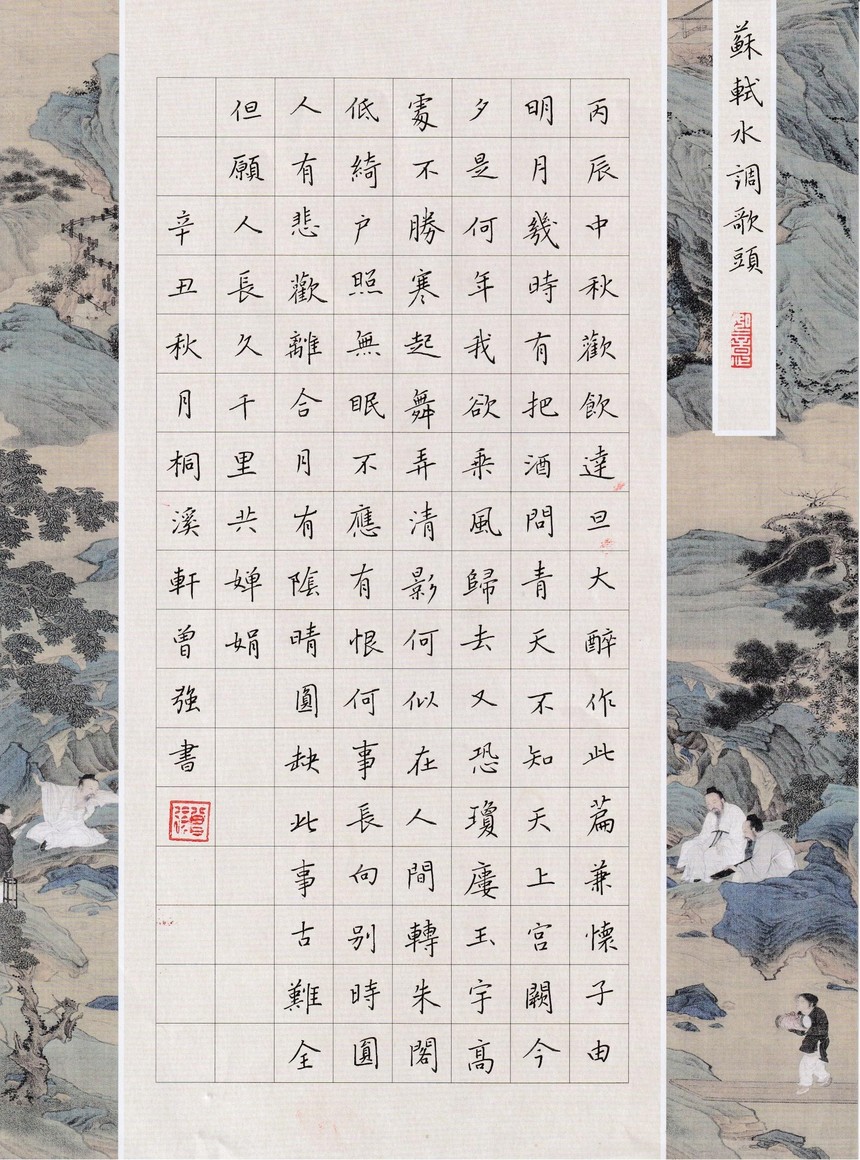 蘇軾水調歌頭
丙辰中秋歡飲達旦大醉作此篇兼懷子由
明月幾時有把酒問青天不知天上宮闕今
夕是何年我欲乘風歸去又恐瓊廔玉宇高
處不勝寒起舞弄清影何似在人間轉朱閣
低綺户照無眠不應有恨何事長向别時圓
人有悲歡離合月有陰晴圓缺此事古難全
但願人長久千里共嬋娟
辛丑秋月桐溪軒曾強書